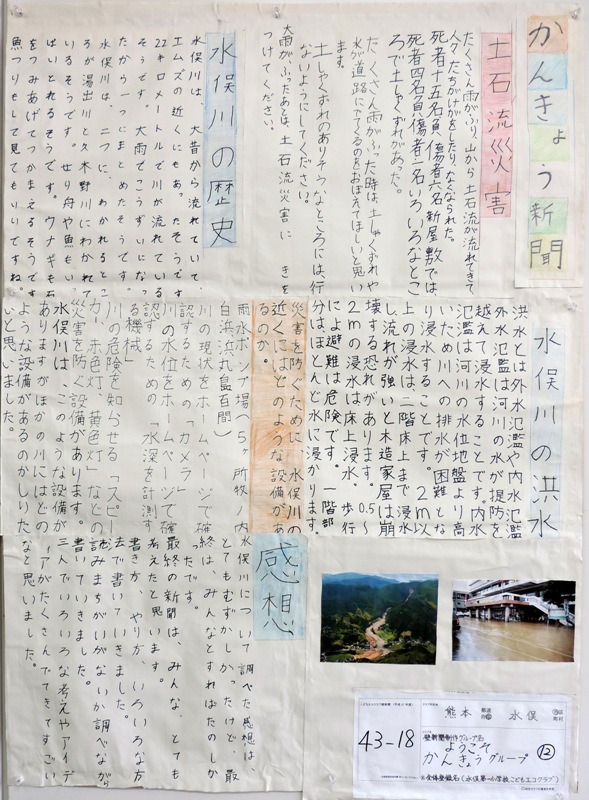 かんきょう新聞
土石流災害
たくさん雨がふり、山から土石流が流れてきて、
人々たちがけがをしたり、なくなられた。
死者十五名負傷者六名新屋敷では、
死者四名負傷者二名いろいろなとこ
ろで土しゃくずれがあった。
たくさん雨がふった時は、土しゃくずれや
水が道路にでてくるのをおぼえてほしいと思い
ます。
土しゃくずれのありそうなところには、行
ないようにしてください。
大雨がふったあとは、土石流災害に きを
つけてください。
水俣川の歴史
水俣川は、大昔から流れていて
エムズの近くにもあったそうです。
22キロメートルで川が流れている
そうです。大雨でこうずいになっ
たから一つにまとめたそうです。
水俣川は、二つに、わかれるとこ
ろが湯出川と久木野川にわかれて
いるそうです。せり舟や魚もいっ
ぱいとれるそうです。ウナギも石
をつみあげてつかまえるそうです。
魚つりもして見てもいいですね。
水俣川の洪水
洪水とは外水氾濫や内水氾濫
外水氾濫は河川の水が堤防を
越えて浸水することです。内水
氾濫は河川の水位地盤より高
いため川への排水が困難とな
り浸水することです。2m以
上の浸水は、二階床上まで浸水
し流れが強いと木造家屋は崩
壊する恐れがあります。0.5〜
2mの浸水は床上浸水。歩行
による避難は危険です。一階部
分はほとんど水に浸かります。
災害を防ぐために、水俣川の
近くにはどのような設備があ
るのか。
雨水ポンプ場へ5ヶ所牧ノ内
白浜浜丸島百間)
川の現状をホームページで確
認するための「カメラ」
川の水位をホームページで確
認するための、「水深を計測す
る機械」
川の危険を知らせる「スピー
カー、赤色灯、黄色灯」などの
災害を防ぐ設備があります。
水俣川は、このような設備が
ありますがほかの川にはどの
ような設備があるのかしりた
いと思いました。
感想
水俣川について調べた感想は、
とてもむずかしかったけど、最
終は、みんなとすればたのしか
ったです。
最終の新聞は、みんな、とても
考えたと思います。
書きかた、やりが、いろいろな方
法で書いていきました。
読みまちがいがないか調べながら
書いていきました。
三人でいろいろな考えやアイデ
ィアがたくさんでてきてすごい
なと思いました。
熊本 水俣
43-18
壁新聞制作グループ名
ようこそ
かんきょうグループ
⑫
全体登録名(水俣第一小学校こどもエコクラブ)